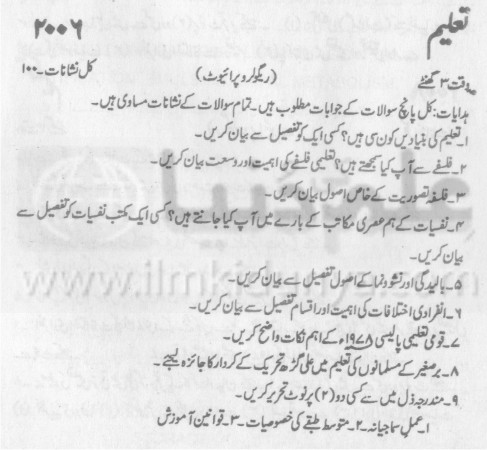 تعلیم
۲۰۰۶
وقت ۳ گھنٹے
(ریگولر و پرائیوٹ)
کل نشانات -۱۰۰
ہدایات: کل پانچ سوالات کے جوابات مطلوب ہیں۔ تمام سوالات کے نشانات مساوی ہیں۔
۱۔ تعلیم کی بنیادیں کون سی ہیں؟ کسی ایک کو تفصیل سے بیان کریں۔
۲۔ فلسفے سے آپ کیا سمجھتے ہیں؟ تعلیمی فلسفے کی اہمیت اور وسعت بیان کریں۔
۳۔ فلسفہ تصوریت کے خاص اصول بیان کریں۔
۴۔ نفسیات کے ہم عصری مکاتب کے بارے میں آپ کیا جانتے ہیں؟ کسی ایک مکتب نفسیات کو تفصیل سے
بیان کریں۔
۵۔ بالیدگی اور نشوونما کے اصول تفصیل سے بیان کریں۔
۶۔ انفرادی اختلافات کی اہمیت اور اقسام تفصیل سے بیان کریں۔
۷۔ قومی تعلیمی پالیسی ۱۹۷۸ء کے اہم نکات واضح کریں۔
۸۔ برصغیر کے مسلمانوں کی تعلیم میں علی گڑھ تحریک کے کردار کا جائزہ لیجئے
۹۔ مندرجہ ذیل میں سے کسی دو (۲) پر نوٹ تحریر کریں۔
۱۔ عمل سماجیانہ ۔۲۔ متوسط طبقے کی خصوصیات ۔۳۔ قوانین آموزش
علم کی دنیا
www.ilmkidunya.com